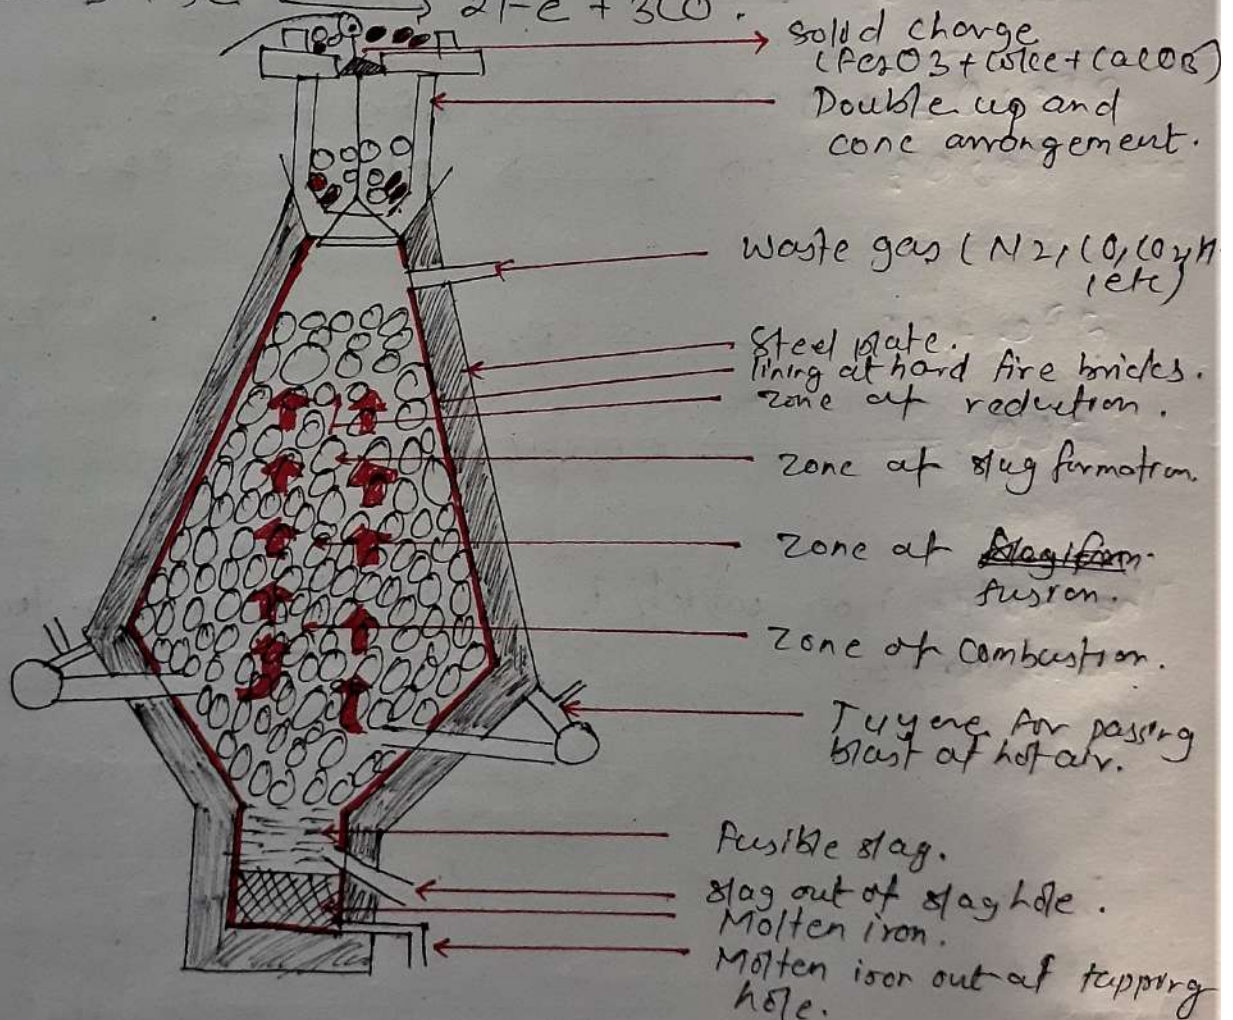 2Fe + 3CO.
solid charge
(Fe2O3 + Coke + CaCO3)
Double cup and
cone arrangement.
Waste gas (N2, CO, CO2, H
, etc)
Steel plate.
lining at hard fire bricks.
Zone of reduction.
Zone of slag formation.
Zone of
fusion.
Zone of Combustion.
Tuyere for passing
blast of hot air.
Fusible slag.
slag out of slag hole.
Molten iron.
Molten iron out of tapping
hole.